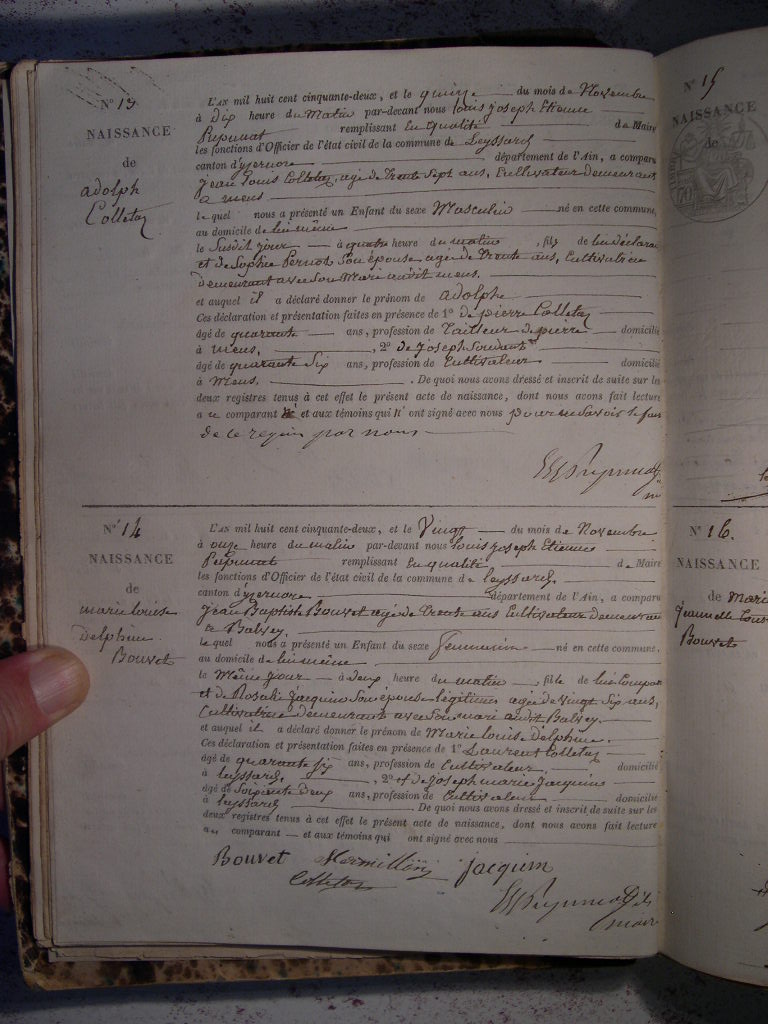 N° 13
NAISSANCE
de
adolph
Colletaz
L'AN mil huit cent cinquante-deux, et le quinze du mois de Novembre
à Dix heure du Matin par-devant nous louis joseph Etienne
remplissant En qualité de Maire
les fonctions d'Officier de l'état civil de la commune de Leyssard
canton d'yzernore département de l'Ain, a comparu
Jean Louis Colletaz, agé de Trente Sept ans, Cultivateur demeurant
a mens
le quel nous a présenté un Enfant du sexe Masculin né en cette commune,
au domicile de lui même
le Susdit jour à quatre heure du matin, fils de lui déclara
et de Sophie Pernot Son épouse agée de Trente ans, Cultivatrice
demeurant avec Son Mari audit mens.
et auquel il a déclaré donner le prénom de adolphe
Ces déclaration et présentation faites en présence de 1° de pierre Colletaz
âgé de quarante ans, profession de Tailleur de pierre domicilié
à mens, 2° de joseph
âgé de quarante Six ans, profession de Cultivateur domicilié
à Mens. De quoi nous avons dressé et inscrit de suite sur les
deux registres tenus à cet effet le présent acte de naissance, dont nous avons fait lecture
a ce comparant et aux témoins qui n'ont signé avec nous pour ne Savoir le faire
de ce requis par nous
N° 14
NAISSANCE
de
marie louise
delphine
Bouvet
L'AN mil huit cent cinquante-deux, et le Vingt du mois de Novembre
à onze heure du matin par-devant nous louis joseph Etienne
remplissant En qualité de Maire
les fonctions d'Officier de l'état civil de la commune de leyssard.
canton d'yzernore département de l'Ain, a comparu
Jean Baptiste Bouvet agé de Trente ans Cultivateur demeurant
a Balvey.
le quel nous a présenté un Enfant du sexe feminin né en cette commune,
au domicile de lui même
le Même jour à deux heure du matin, fille de lui Compar
et de Rosalie jacquin Son épouse légitime agée de vingt Six ans,
Cultivatrice demeurant avec Son mari audit Balvey.
et auquel il a déclaré donner le prénom de Marie louise Delphine.
Ces déclaration et présentation faites en présence de 1° Laurent Colletaz
âgé de quarante Six ans, profession de Cultivateur domicilié
à leyssard, 2° et de joseph marie Jacquin
âgé de Soixante deux ans, profession de Cultivateur domicilié
à leyssard De quoi nous avons dressé et inscrit de suite sur les
deux registres tenus à cet effet le présent acte de naissance, dont nous avons fait lecture
au comparant et aux témoins qui ont signé avec nous
Bouvet jacquin
Colletaz
maire
N° 15
NAISSANCE
de
N° 16.
NAISSANCE
de Mari
Jeannette
Bouvet